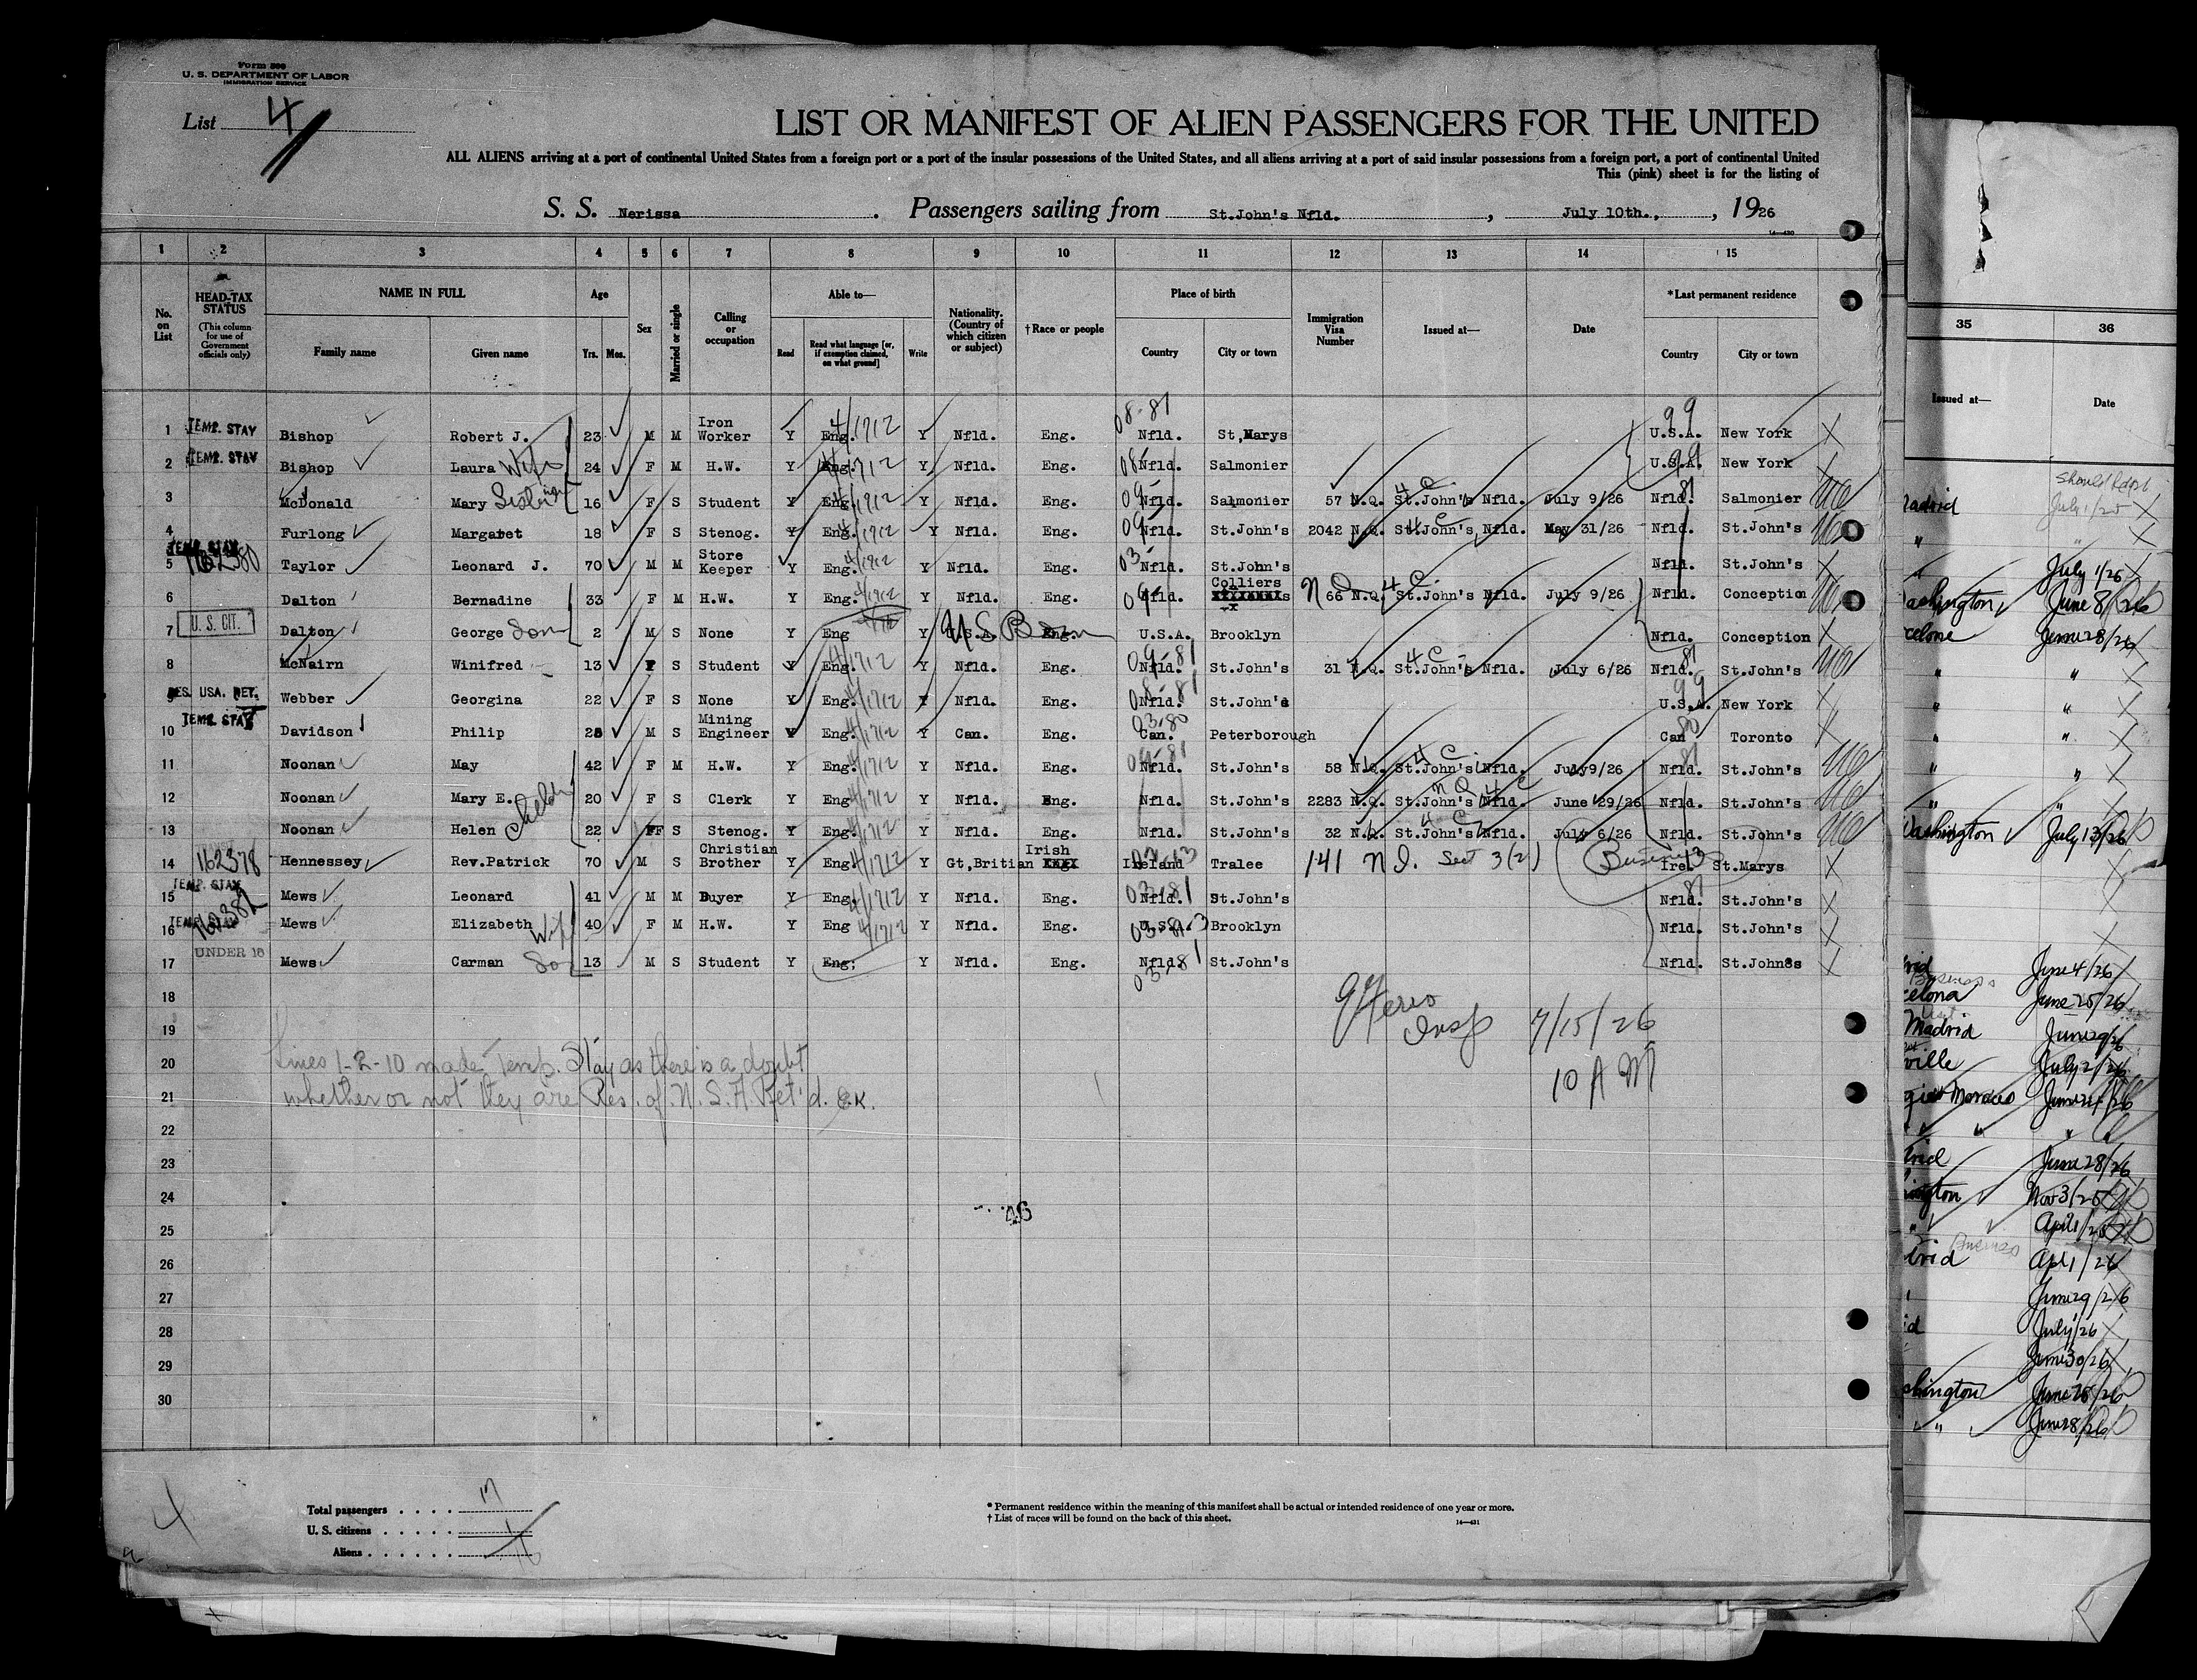 Form 500
U. S. DEPARTMENT OF LABOR
IMMIGRATION SERVICE
List 4
LIST OR MANIFEST OF ALIEN PASSENGERS FOR THE UNITED
ALL ALIENS arriving at a port of continental United States from a foreign port or a port of the insular possessions of the United States, and all aliens arriving at a port of said insular possessions from a foreign port, a port of continental United
This (pink) sheet is for the listing of
S. S. Nerissa. Passengers sailing from St.John's Nfld., July 10th., 1926
1 2 3 4 5 6 7 8 9 10 11 12 13 14 15
No. on List
HEAD-TAX STATUS (This column for use of Government officials only)
NAME IN FULL Family name Given name
Age Yrs. Mos.
Sex
Married or single
Calling or occupation
Able to— Read Read what language [or, if exemption claimed, on what ground] Write
Nationality. (Country of which citizen or subject)
† Race or people
Place of birth Country City or town
Immigration Visa Number
Issued at—
Date
* Last permanent residence Country City or town
1 TEMP. STAY Bishop Robert J. 23 M M Iron Worker Y Eng. 4/1712 Y Nfld. Eng. 08-81 Nfld. St,Marys 99 U.S.A. New York
2 TEMP. STAY Bishop Laura Wife 24 F M H.W. Y Eng. 4/1712 Y Nfld. Eng. 08 Nfld. Salmonier 99 U.S.A. New York
3 McDonald Mary Sister 16 F S Student Y Eng. 4/1712 Y Nfld. Eng. 09 Nfld. Salmonier 57 N.Q. 4 C St.John's Nfld. July 9/26 81 Nfld. Salmonier
4 Furlong Margaret 18 F S Stenog. Y Eng. 4/1712 Y Nfld. Eng. 09 Nfld. St.John's 2042 N.Q. 4 C St.John's Nfld. May 31/26 Nfld. St.John's
5 TEMP. STAY 162380 Taylor Leonard J. 70 M M Store Keeper Y Eng. 4/1712 Y Nfld. Eng. 03 Nfld. St.John's Nfld. St.John's
6 Dalton Bernadine 33 F M H.W. Y Eng. 4/1712 Y Nfld. Eng. 09 Nfld. Colliers 66 N.Q. N Q 4 C St.John's Nfld. July 9/26 Nfld. Conception
7 U. S. CIT. Dalton George Son 2 M S None Y Eng Y U.S. Born U.S.A. Brooklyn Nfld. Conception
8 McNairn Winifred 13 F S Student Y Eng. 4/1712 Y Nfld. Eng. 09-81 Nfld. St.John's 31 N.Q. 4 C St.John's Nfld. July 6/26 81 Nfld. St.John's
9 RES. USA. RET. Webber Georgina 22 F S None Y Eng. 4/1712 Y Nfld. Eng. 08-81 Nfld. St.John's 99 U.S.A. New York
10 TEMP. STAY Davidson Philip 28 M S Mining Engineer Y Eng. 4/1712 Y Can. Eng. 03-80 Can. Peterborough 80 Can Toronto
11 Noonan May 42 F M H.W. Y Eng. 4/1712 Y Nfld. Eng. 09-81 Nfld. St.John's 58 N.Q. 4 C St.John's Nfld. July9/26 81 Nfld. St.John's
12 Noonan Mary E. 20 F S Clerk Y Eng 4/1712 Y Nfld. Eng. Nfld. St.John's 2283 N.Q. N Q 4 C St.John's Nfld. June 29/26 Nfld. St.John's
13 Noonan Helen 22 F S Stenog. Y Eng. 4/1712 Y Nfld. Eng. Nfld. St.John's 32 N.Q. 4 C St.John's Nfld. July 6/26 Nfld. St.John's
14 162378 Hennessey Rev.Patrick 70 M S Christian Brother Y Eng. 4/1712 Y Gt,Britian Irish Ireland Tralee 141 N I. Sect 3(2) Business Irel. St.Marys
15 TEMP. STAY Mews Leonard 41 M M Buyer Y Eng. 4/1712 Y Nfld. Eng. 03-81 Nfld. St.John's 81 Nfld. St.John's
16 TEMP. STAY Mews Elizabeth Wife 40 F M H.W. Y Eng 4/1712 Y Nfld. Eng. U.S.A. Brooklyn Nfld. St.John's
17 UNDER 16 Mews Carman Son 13 M S Student Y Eng; Y Nfld. Eng. Nfld. 03-81 St.John's Nfld. St.John8s
18
19 Insp 7/15/26
20 Lines 1-2-10 made Temp. Stay as there is a doubt 10 AM
21 whether or not they are Res. of U.S.A. Ret'd. E.K.
22
23
24
25
26
27
28
29
30
Total passengers . . . . 17
U. S. citizens . . . . . 1
Aliens . . . . . . 16
* Permanent residence within the meaning of this manifest shall be actual or intended residence of one year or more.
† List of races will be found on the back of this sheet.
14—431
35 36
Issued at— Date
July 1/26
June 8/26
June 28/26
July 13/26
June 4/26
June 25/26
Madrid
July 2/26
June 28/26
Nov 3/25
Apl 1/26
June 29/26
July 1/26
June 30/26
June 28/26
June 28/26